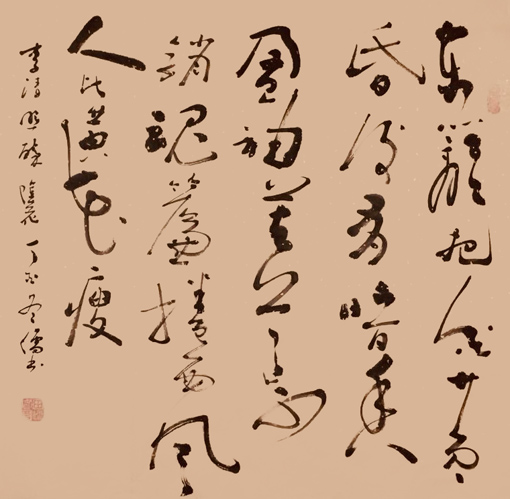 東籬把酒黃
昏後有暗香
盈袖莫道不
銷魂簾捲西風
人比黃花瘦
李清照醉陰花 丁酉冬儒书